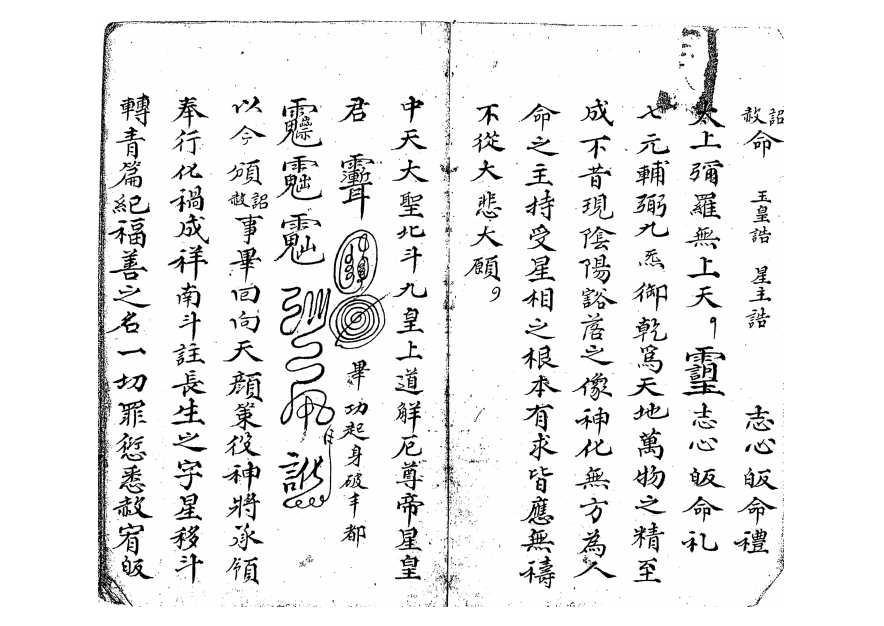 詔赦命 玉皇誥 星主誥 志心皈命禮
太上彌羅無上天 志心皈命礼
七元輔弼九炁御乾為天地萬物之精至
成不昔現陰陽谿落之像神化無方為人
命之主持受星相之根本有求皆應無禱
不從大悲大願
中天大聖北斗九皇上道解厄尊帝星皇
君 畢功起身破丰都
以今頒詔赦事畢回向天顏策役神將承領
奉行化禍成祥南斗註長生之字星移斗
轉青篇紀福善之名一切罪愆悉赦宥皈